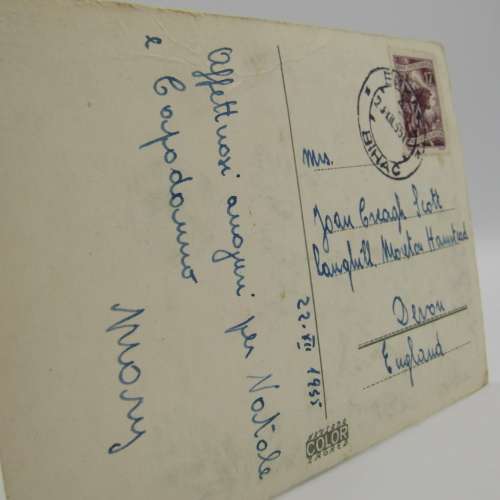 Affettuosi auguri per Natale
e Capodanno
Mary
22. XII 1955
Mrs.
Joan Creagh Scott
Langhill. Moreton Hamstead
Devon
England
BIHAĆ
17
COLOR
ZAGREB